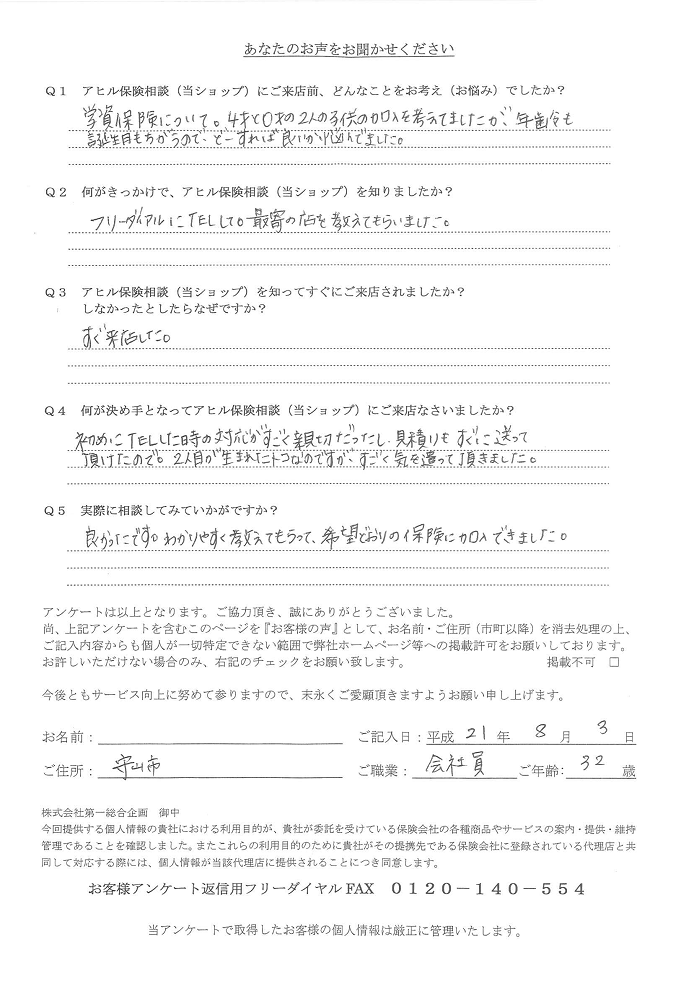 あなたのお声をお聞かせください
Q1 アヒル保険相談（当ショップ）にご来店前、どんなことをお考え（お悩み）でしたか？
学資保険について。4才と0才の2人の子供の加入を考えてましたが、年齢も
誕生日もちがうので、どーすれば良いか悩んでました。
Q2 何がきっかけで、アヒル保険相談（当ショップ）を知りましたか？
フリーダイアルにTELして。最寄の店を教えてもらいました。
Q3 アヒル保険相談（当ショップ）を知ってすぐにご来店されましたか？
しなかったとしたらなぜですか？
すぐ来店した。
Q4 何が決め手となってアヒル保険相談（当ショップ）にご来店なさいましたか？
初めにTELした時の対応がすごく親切だったし、見積りもすぐに送って
頂けたので。2人目が生まれたトコなのですが、すごく気を遣って頂きました。
Q5 実際に相談してみていかがですか？
良かったです。わかりやすく教えてもらって、希望どおりの保険に加入できました。
アンケートは以上となります。ご協力頂き、誠にありがとうございました。
尚、上記アンケートを含むこのページを『お客様の声』として、お名前・ご住所（市町以降）を消去処理の上、
ご記入内容からも個人が一切特定できない範囲で弊社ホームページ等への掲載許可をお願いしております。
お許しいただけない場合のみ、右記のチェックをお願い致します。 掲載不可 □
今後ともサービス向上に努めて参りますので、末永くご愛顧頂きますようお願い申し上げます。
お名前： ご記入日：平成 21 年 8 月 3 日
ご住所： 守山市 ご職業： 会社員 ご年齢： 32 歳
株式会社第一総合企画 御中
今回提供する個人情報の貴社における利用目的が、貴社が委託を受けている保険会社の各種商品やサービスの案内・提供・維持
管理であることを確認しました。またこれらの利用目的のために貴社がその提携先である保険会社に登録されている代理店と共
同して対応する際には、個人情報が当該代理店に提供されることにつき同意します。
お客様アンケート返信用フリーダイヤルFAX 0120－140－554
当アンケートで取得したお客様の個人情報は厳正に管理いたします。